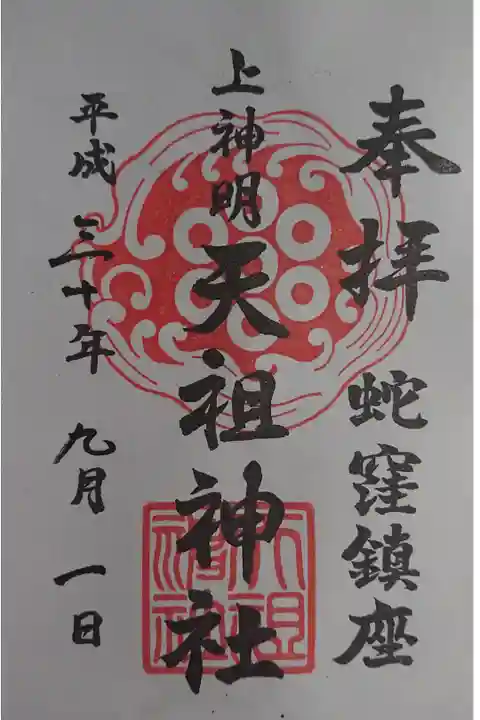 奉拝 蛇窪鎮座
上神明天祖神社
平成三十年 九月 一日
天祖神社